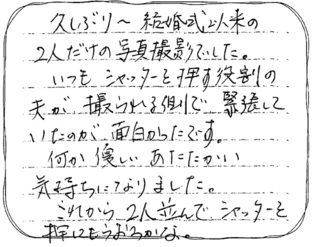 久しぶり〜 結婚式以来の
2人だけの写真撮影でした。
いつも シャッターを押す役割の
夫が 撮られる側で 緊張して
いたのが 面白かったです。
何か 優しい あたたかい
気持ちになりました。
これから 2人並んで シャッターを
押してもらおうかな。